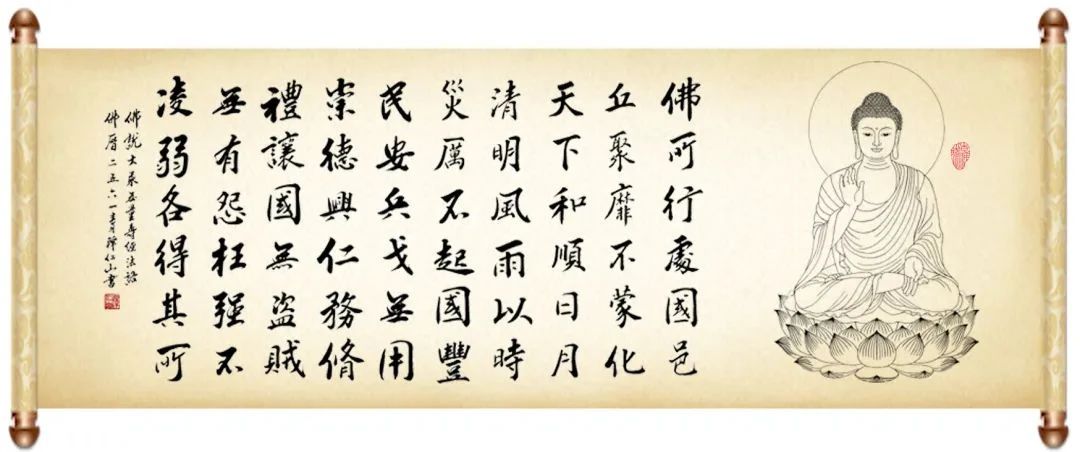 佛所行處國邑
丘聚靡不蒙化
天下和順日月
清明風雨以時
災厲不起國豐
民安兵戈無用
崇德興仁務脩
禮讓國無盜賊
無有怨枉强不
凌弱各得其所
佛說大乘無量壽經法語
佛曆二五六一年 釋仁山書